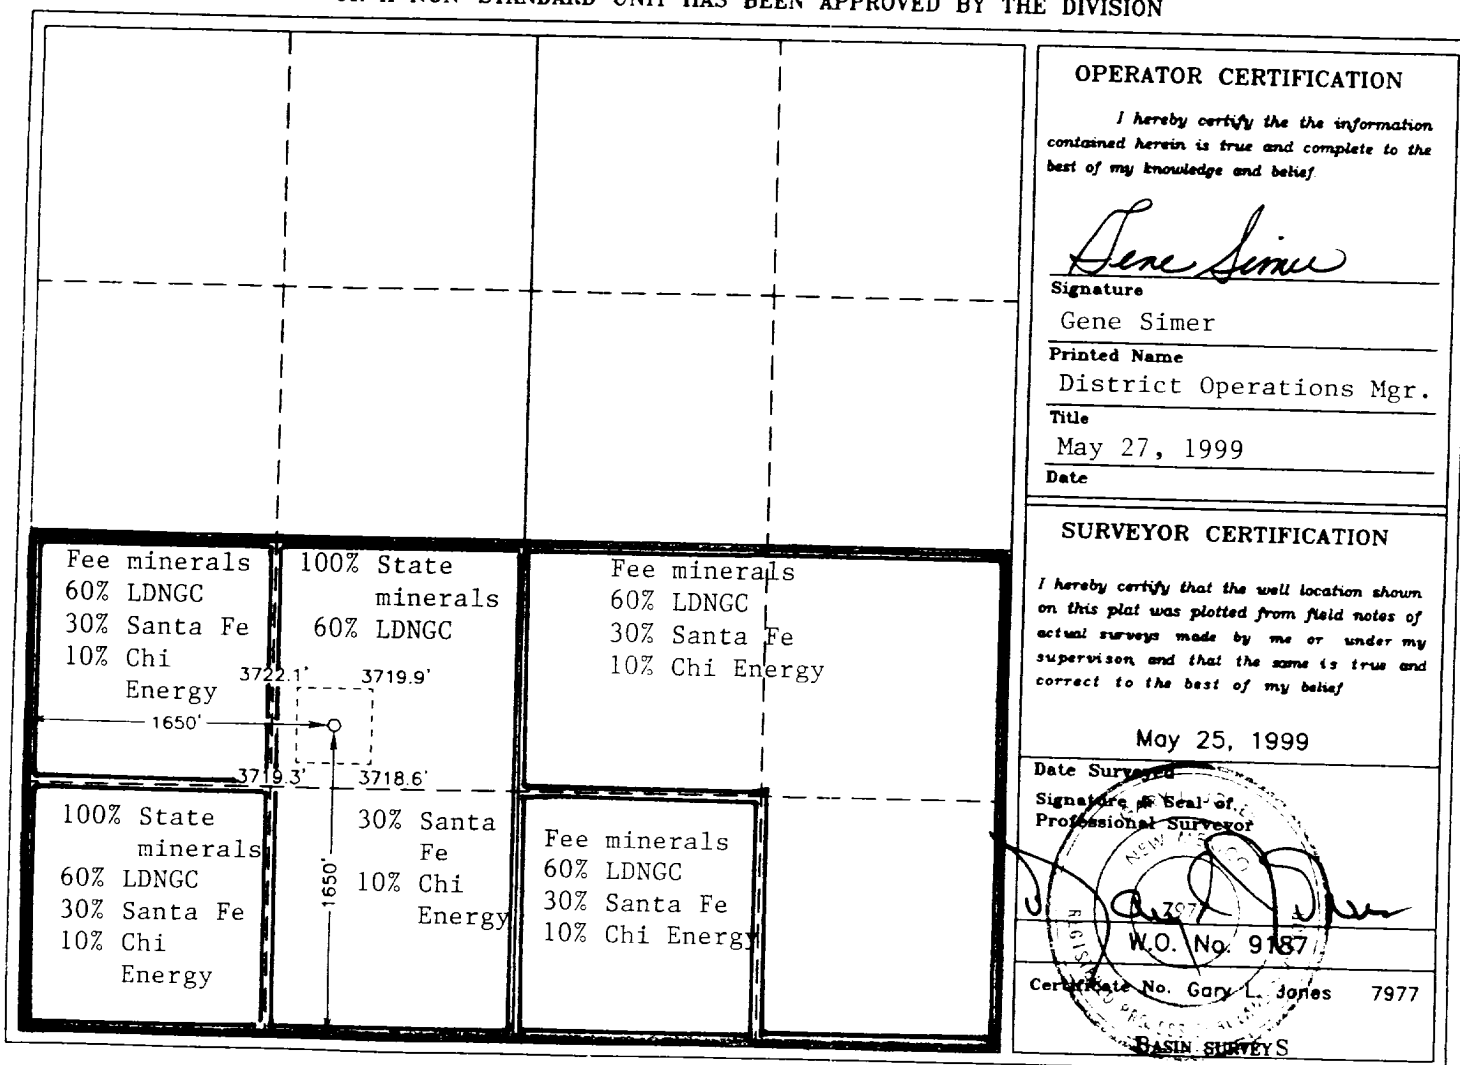 OR A NON-STANDARD UNIT HAS BEEN APPROVED BY THE DIVISION
Fee minerals
60% LDNGC
30% Santa Fe
10% Chi
Energy
100% State
minerals
60% LDNGC
Fee minerals
60% LDNGC
30% Santa Fe
10% Chi Energy
3722.1'
3719.9'
1650'
3719.3'
3718.6'
100% State
minerals
60% LDNGC
30% Santa Fe
10% Chi
Energy
1650'
30% Santa
Fe
10% Chi
Energy
Fee minerals
60% LDNGC
30% Santa Fe
10% Chi Energy
OPERATOR CERTIFICATION
I hereby certify the the information
contained herein is true and complete to the
best of my knowledge and belief.
Gene Simer
Signature
Gene Simer
Printed Name
District Operations Mgr.
Title
May 27, 1999
Date
SURVEYOR CERTIFICATION
I hereby certify that the well location shown
on this plat was plotted from field notes of
actual surveys made by me or under my
supervison, and that the same is true and
correct to the best of my belief
May 25, 1999
Date Surveyed
Signature & Seal of
Professional Surveyor
NEW MEXICO
W.O. No. 9187
Certificate No. Gary L. Jones 7977
BASIN SURVEYS